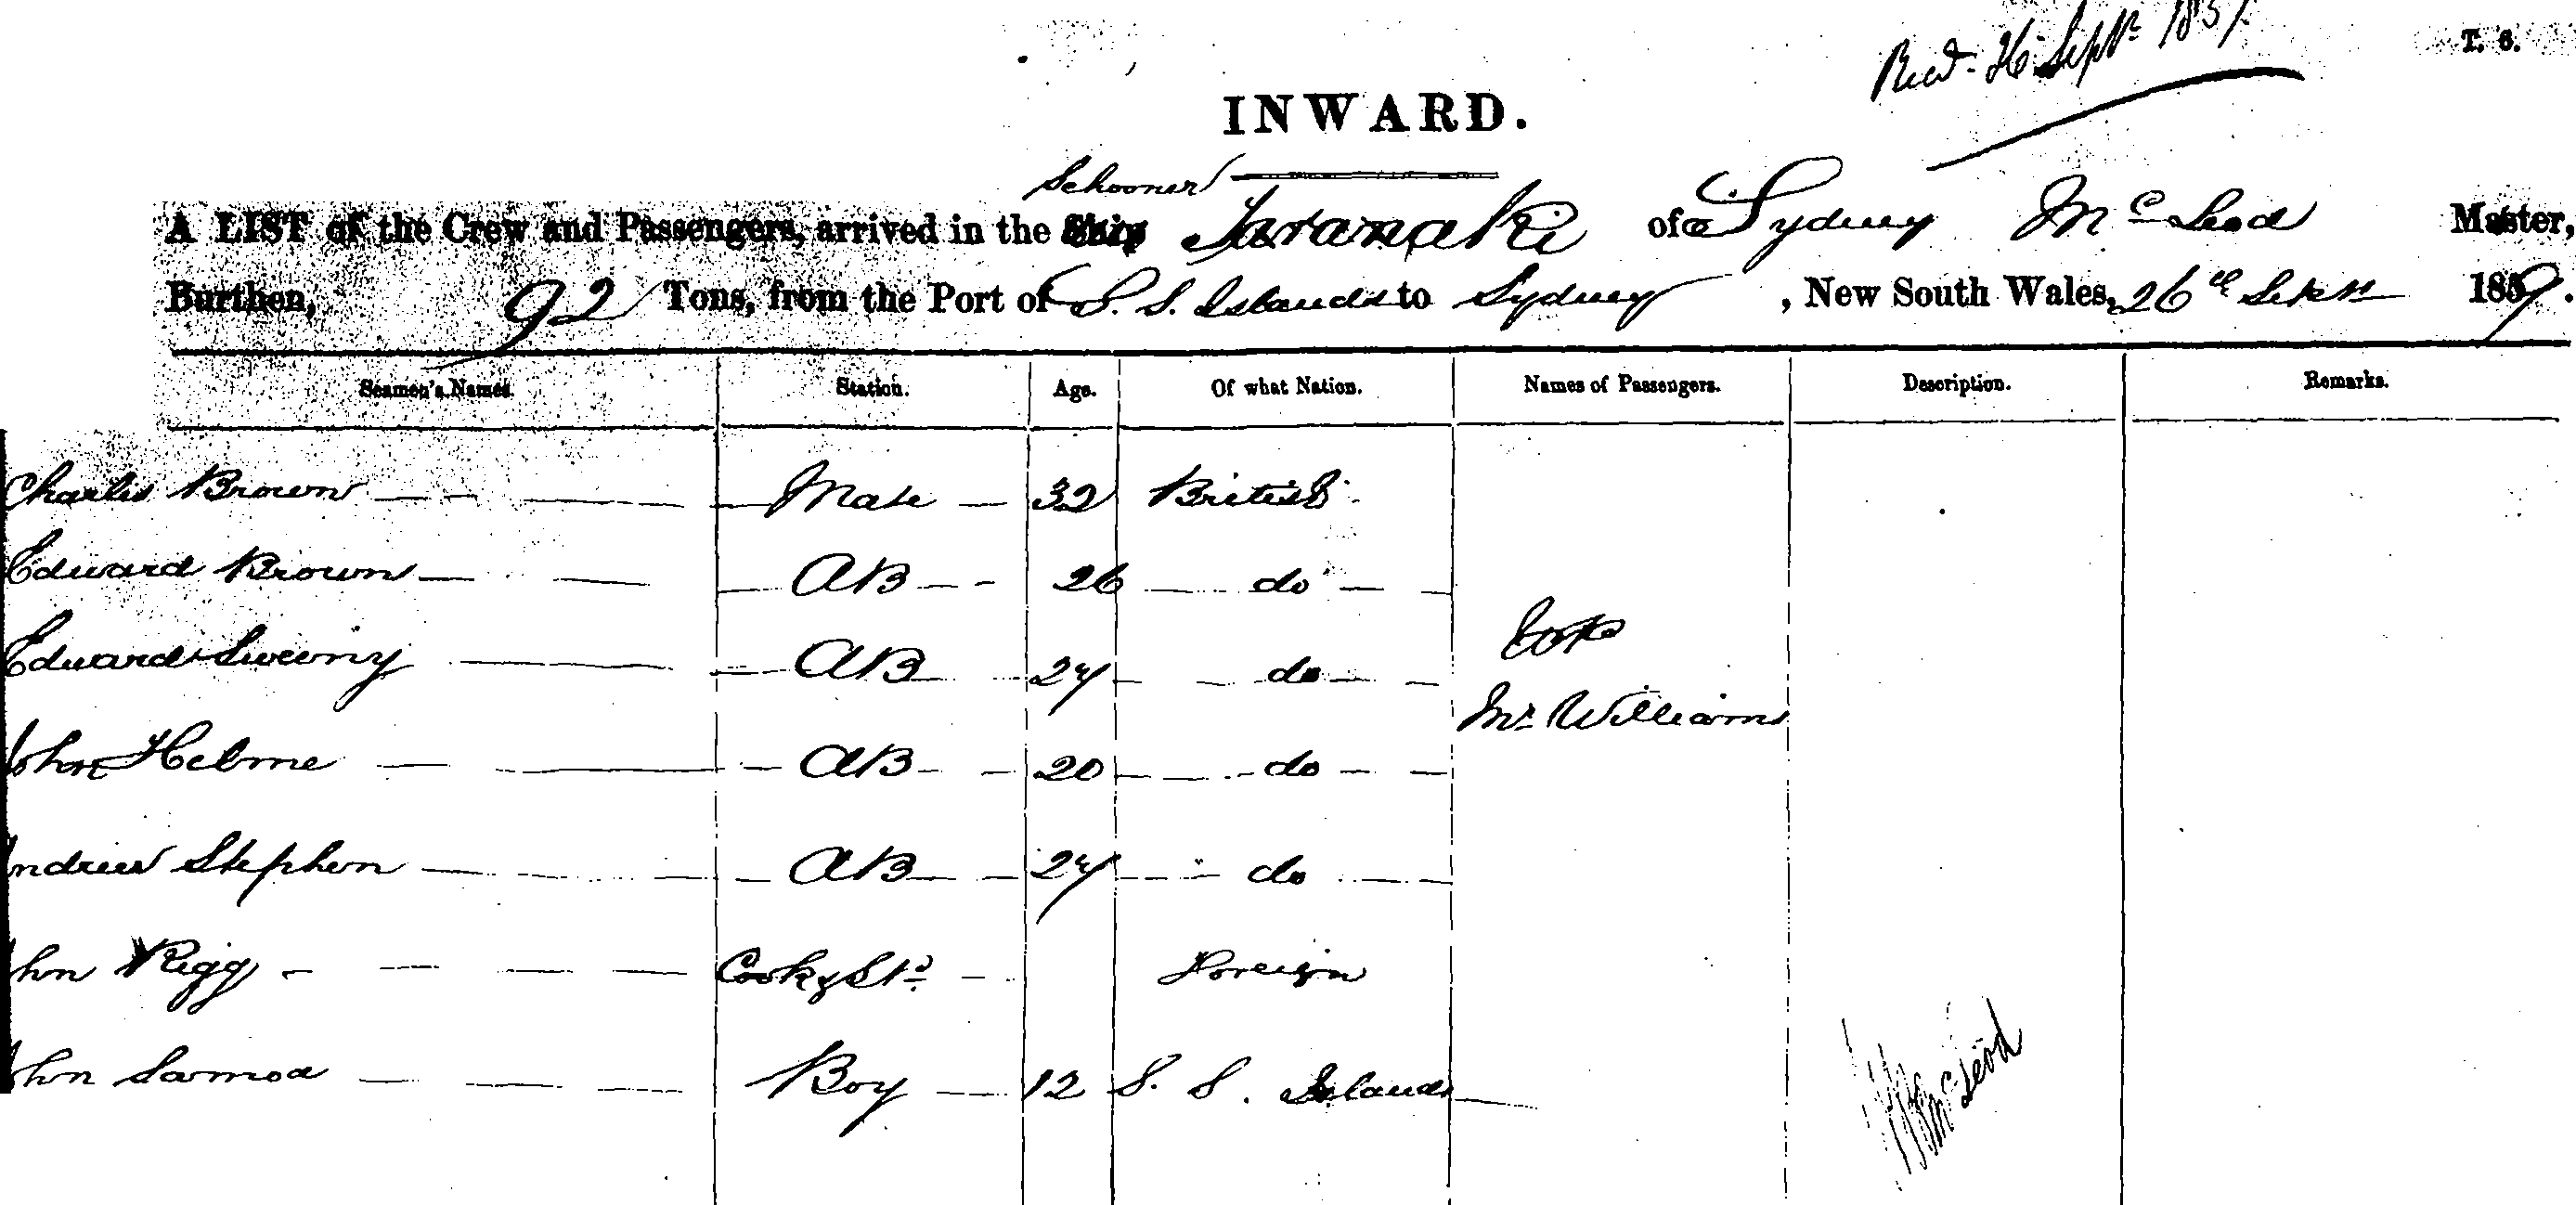 Recd. 26 Septr 1859
T. S.
INWARD.
Schooner
A LIST of the Crew and Passengers, arrived in the Ship Taranaki of Sydney McLeod Master,
Burthen, 92 Tons, from the Port of S. S. Islands to Sydney, New South Wales, 26th Septr 1859.
Seamen's Names. Station. Age. Of what Nation. Names of Passengers. Description. Remarks.
Charles Brown Mate 32 British
Edward Brown AB 26 do
Edward Sweeny AB 24 do
Mr. Williams
John Helme AB 20 do
Andrew Stephen AB 24 do
John Rigg Cook & Std. Foreign
John Samoa Boy 12 S. S. Islands
McLeod